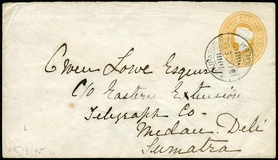 Owen Lowe Esquire
c/o Eastern Extension
Telegraph Co.
Medan Deli
Sumatra